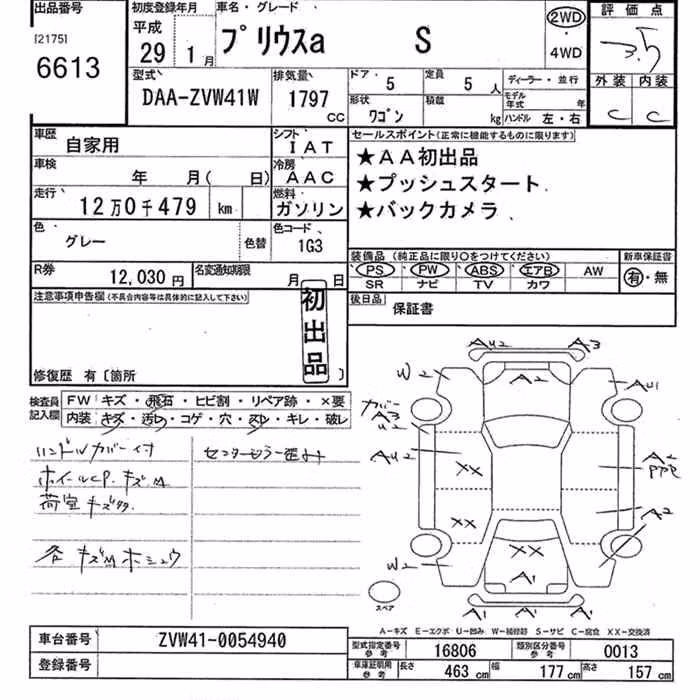 出品番号 初度登録年月 車名・グレード 評価点
[2175] 6613
平成 29 1月
プリウスα S
2WD ・ 4WD
3.5
型式 DAA-ZVW41W
排気量 1797 CC
ドア・ 5
定員 5人
形状 ワゴン
積載 kg
ディーラー・並行
モデル年式 年
ハンドル 左・右
外装 内装
C C
車歴 自家用
シフト IAT
車検 年 月( 日)
冷房 AAC
走行 12万0千479 km
燃料 ガソリン
色 グレー 色替
色コード 1G3
R券 12,030円
名変通知期限 月 日
セールスポイント(正常に機能するものに限ります)
★AA初出品
★プッシュスタート
★バックカメラ
装備品 (純正品に限り○をつけてください) 新車保証書
PS PW ABS エアB AW 有・無
SR ナビ TV カワ
後日品 保証書
注意事項申告欄(不具合内容等は具体的に記入して下さい)
初出品
修復歴 有〔箇所 〕
検査員記入欄
FW キズ・飛石・ヒビ割・リペア跡・×要
内装 キズ・汚レ・コゲ・穴・スレ・キレ・破レ
ハンドルカバー付
ホイールCP.キズM
荷室キズ
各キズMホシュウ
センターモラー歪ミ
AU2 A3
W2 A2 AU1
カバー A3
U2
AU2 XX A2
XX A2
W2 XX
A1
A1 A1 A1
スペア
A-キズ E-エクボ U-凹み W-補修跡 S-サビ C-腐食 XX-交換済
車台番号 ZVW41-0054940
登録番号
型式指定番号 参考 16806
類別区分番号 参考 0013
車庫証明用 参考 長さ 463cm 幅 177cm 高さ 157cm